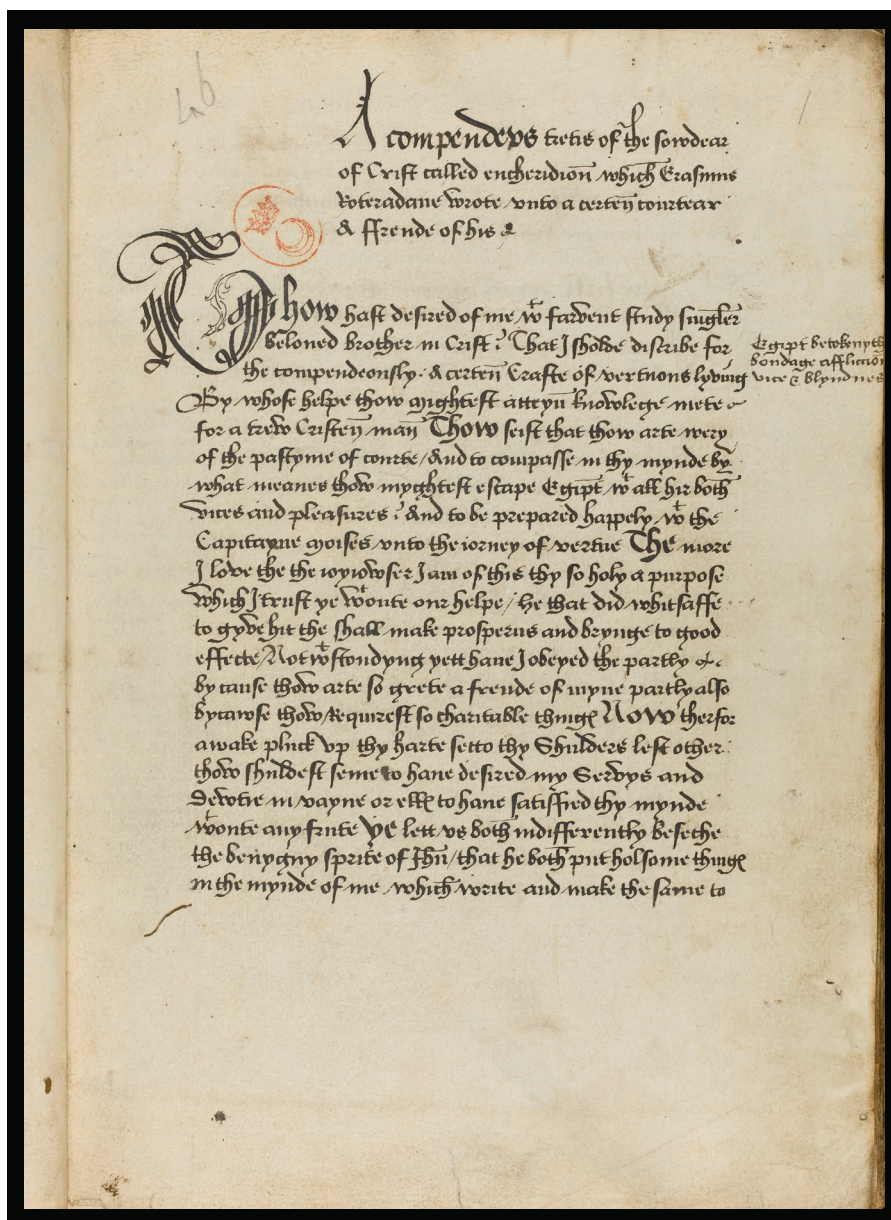 A compendeus tretis of the sowdear
of Crist called encheridion which Erasmus
Roteradane wrote unto a certen courtear
& ffrende of his
Thow hast desired of me wt farvent study singler
beloued brother in Crist That I sholde discribe for
the compendeonsly A certen Crafte of vertuous lyving
By whose helpe thow mightest atteyn knowlege mete
for a trew Cristen man Thow seist that thow arte wery
of the pastyme of courte / And to compasse in thy mynde by
what meanes thow myghtest escape Egipt wt all hir both
vices and pleasures And to be prepared happely wt the
Capitayne Moises unto the iorney of vertue The more
I love the the ioyiowser I am of this thy so holy a purpose
which I trust ye wtoute our helpe / he that did whitsaffe
to gyve hit the shall make prosperus and brynge to good
effecte / Notwtstondyng yett haue I obeyed the partly
by cause thow arte so grete a frende of myne partly also
bycawse thow requirest so charitable thinges Now therfor
awake pluck up thy harte setto thy Shulders lest other
thow shuldest seme to haue desired my Servys and
dewtie in vayne or elles to haue satisfied thy mynde
wtoute any frute ye lett us both indifferently beseche
the benygny sprite of Ihu / that he both put holsome thinges
in the mynde of me which write and make the same to
Egipt betokenyth
bondage affliccion
vice & blyndnes